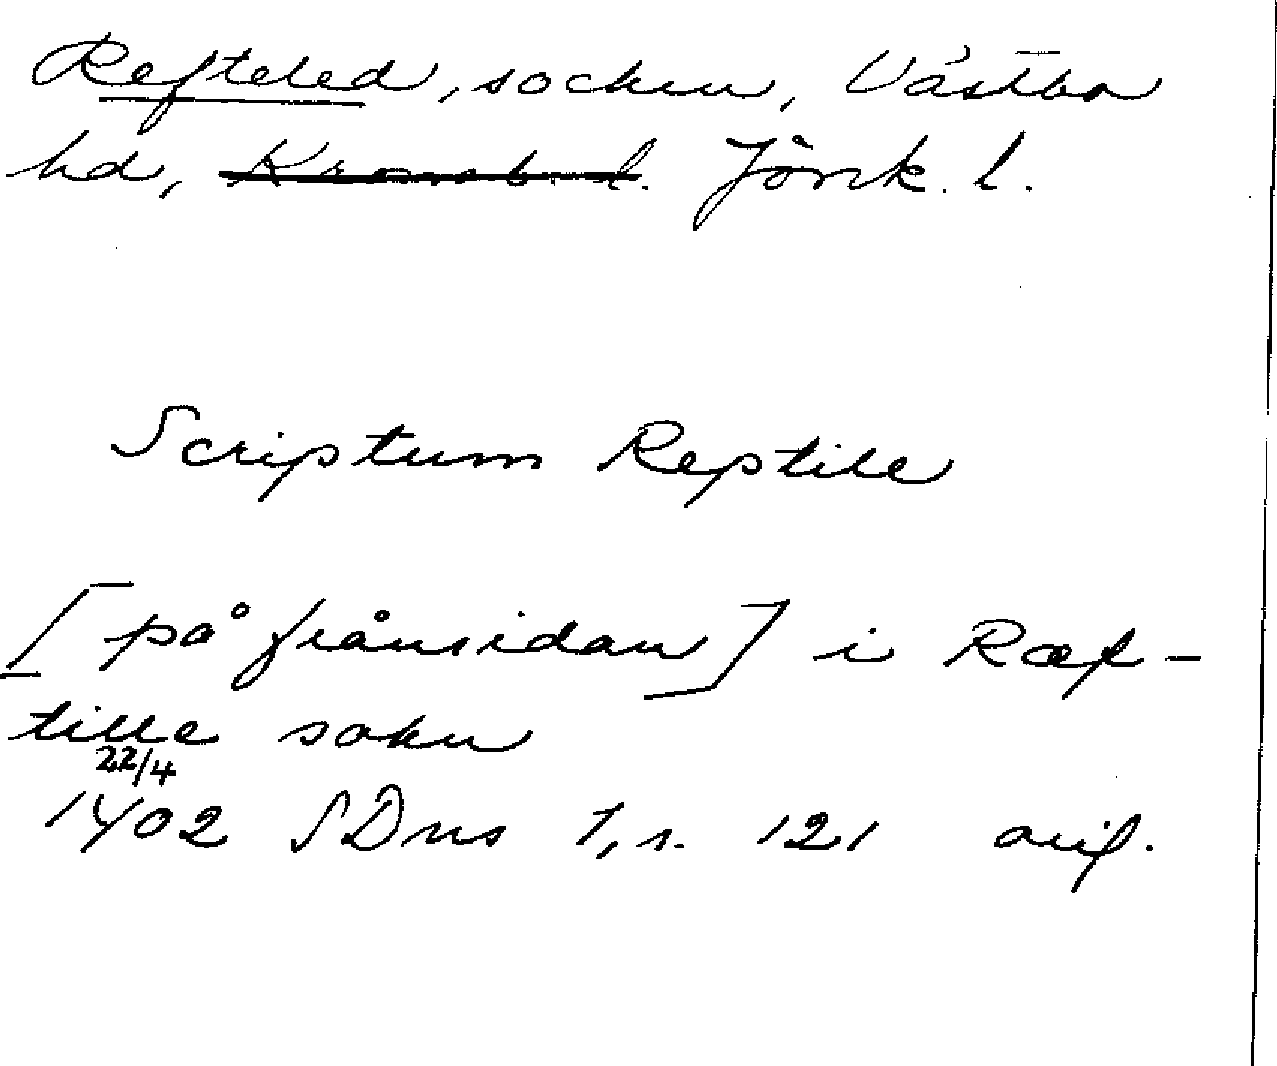 Refteled, socken, Västbo
hd, Kronob. l. Jönk. l.
Scriptum Reptile
[på frånsidan] i Ræf-
tille sokn
22/4
1402 SDns 1, s. 121 avj.